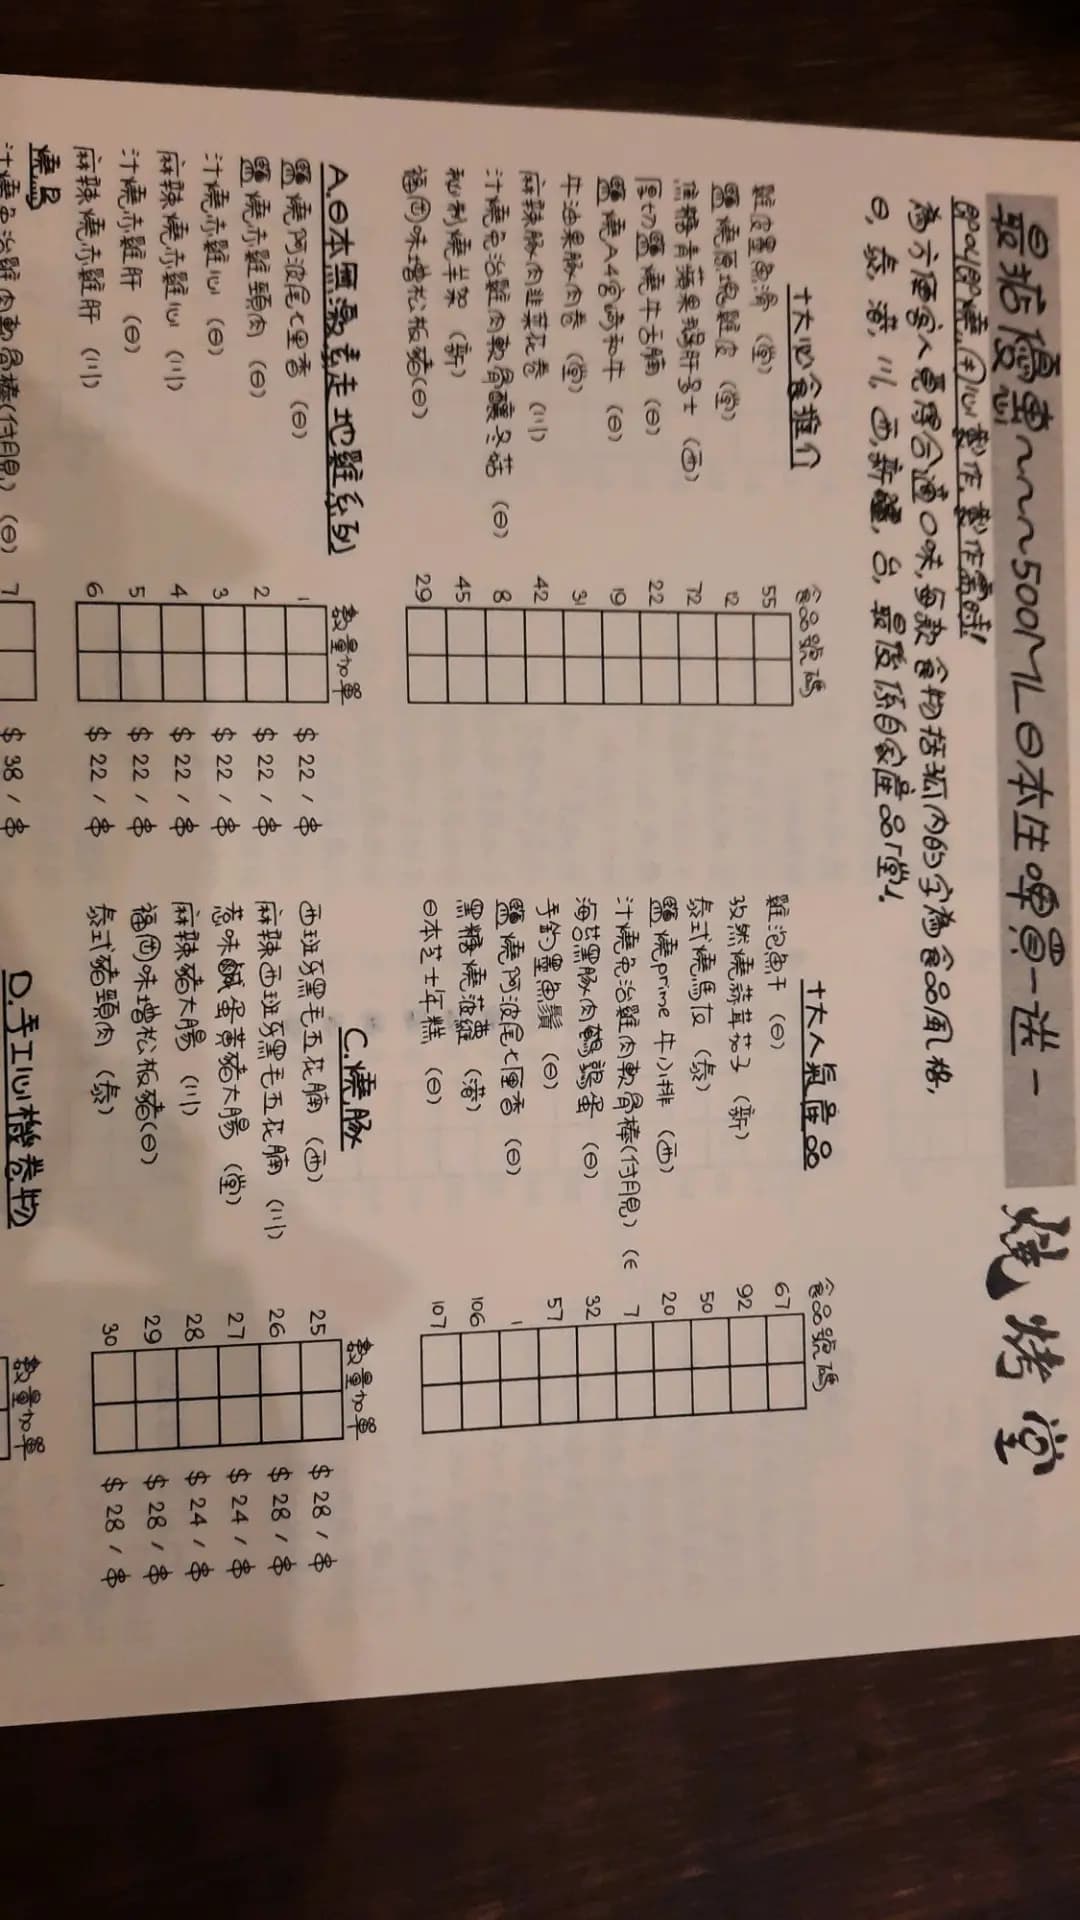 最抵優惠~~~500ML日本生啤買一送一
燒烤堂
即叫即燒,用心製作,製作需時!
為方便客人易尋合適口味,每款食物括弧內的字為食品風格,
日,泰,港,川,西,新疆,台,最後係自家產品「堂」.
十大必食推介
食品號碼
雞皮墨魚滑 (堂) 55
鹽燒原塊雞皮 (堂) 12
焦糖青蘋果鵝肝多士 (西) 72
厚切鹽燒牛舌腩 (日) 22
鹽燒A4宮崎和牛 (日) 19
牛油果豚肉卷 (堂) 31
麻辣豚肉韮菜花卷 (川) 42
汁燒免治雞肉軟骨釀冬菇 (日) 8
秘制燒羊架 (新) 45
福岡味增松板豬(日) 29
十大人氣產品
食品號碼
雞泡魚干 (日) 67
孜然燒蒜茸茄子 (新) 92
泰式燒馬友 (泰) 50
鹽燒prime 牛小排 (西) 20
汁燒免治雞肉軟骨棒(付月見) (日 7
海苔黑豚肉鵪鶉蛋 (日) 32
手釣墨魚鬚 (日) 57
鹽燒阿波尾七里香 (日) 1
黑糖燒菠蘿 (港) 106
日本芝士年糕 (日) 107
A.日本黑瀑布走地雞系列
數量加單
鹽燒阿波尾七里香 (日) 1 $22/串
鹽燒赤雞頸肉 (日) 2 $22/串
汁燒赤雞心 (日) 3 $22/串
麻辣燒赤雞心 (川) 4 $22/串
汁燒赤雞肝 (日) 5 $22/串
麻辣燒赤雞肝 (川) 6 $22/串
燒鳥
汁燒免治雞肉軟骨棒(付月見) (日) 7 $38/串
C.燒豚
數量加單
西班牙黑毛五花腩 (西) 25 $28/串
麻辣西班牙黑毛五花腩 (川) 26 $28/串
惹味鹹蛋黃豬大腸 (堂) 27 $24/串
麻辣豬大腸 (川) 28 $24/串
福岡味增松板豬(日) 29 $28/串
泰式豬頸肉 (泰) 30 $28/串
D.手工心機卷物
數量加單